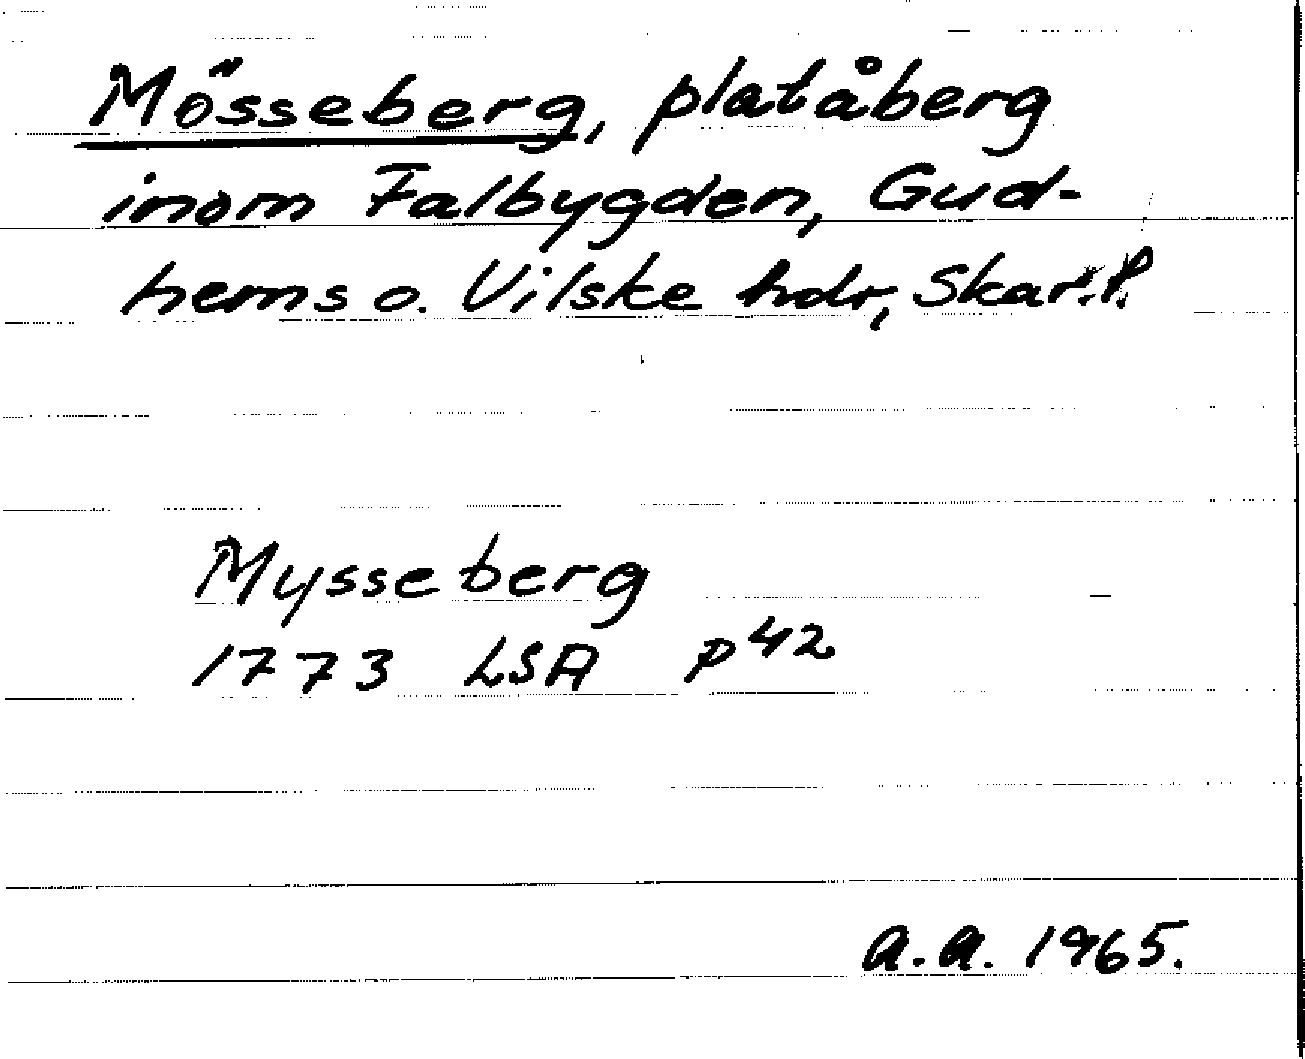 Mösseberg, platåberg
inom Falbygden, Gud-
hems o. Vilske hdr, Skar.l.
Mysseberg
1773 LSA P 42
A.A. 1965.